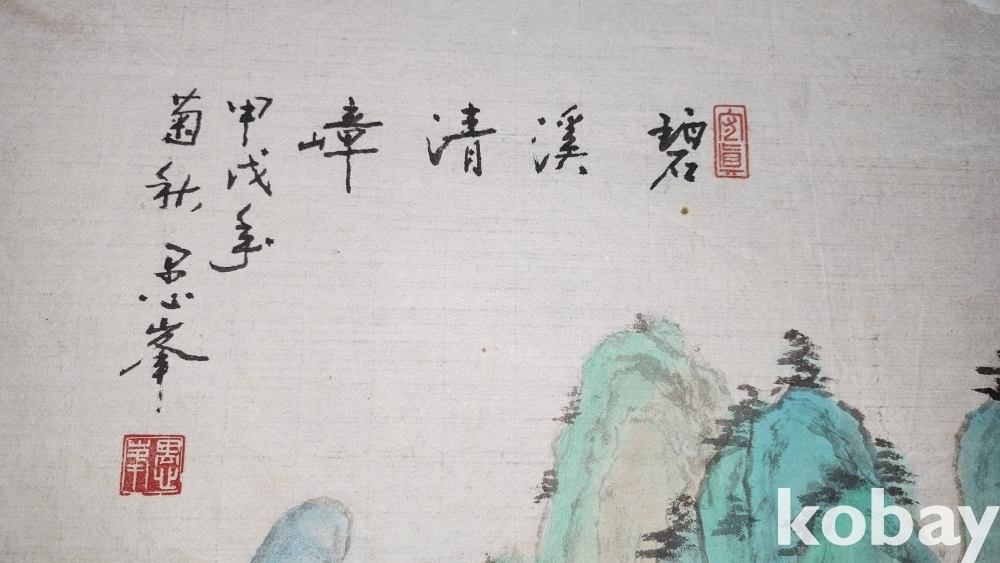 碧溪清嶂
甲戌年
菊秋 愚峯
愚峯
kobay